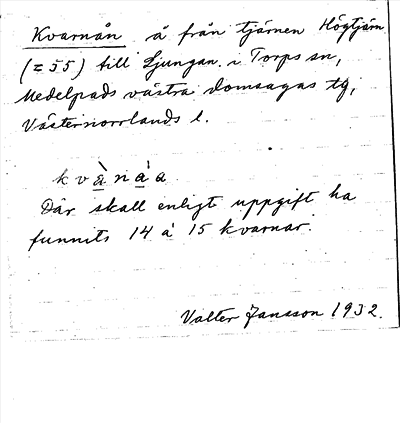 Kvarnån å från tjärnen Högtjärn
(= 55) till Ljungan i Torps sn,
Medelpads västra domsagas tg,
Västernorrlands l.
kvànàa
Där skall enligt uppgift ha
funnits 14 à 15 kvarnar.
Valter Jansson 1932.